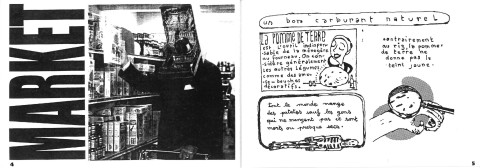 MARKET
4
un bon carburant naturel
LA POMME DE TERRE
est l'outil indispen-
sable de la ménagère
au fourneau. On con-
sidère généralement
les autres légumes
comme des amu-
se-bouches
décoratifs.
contrairement
au riz, la pomme
de terre ne
donne pas le
teint jaune.
Tout le monde mange
des patates sauf les gens
qui ne mangent pas et sont
morts ou presque secs.
5